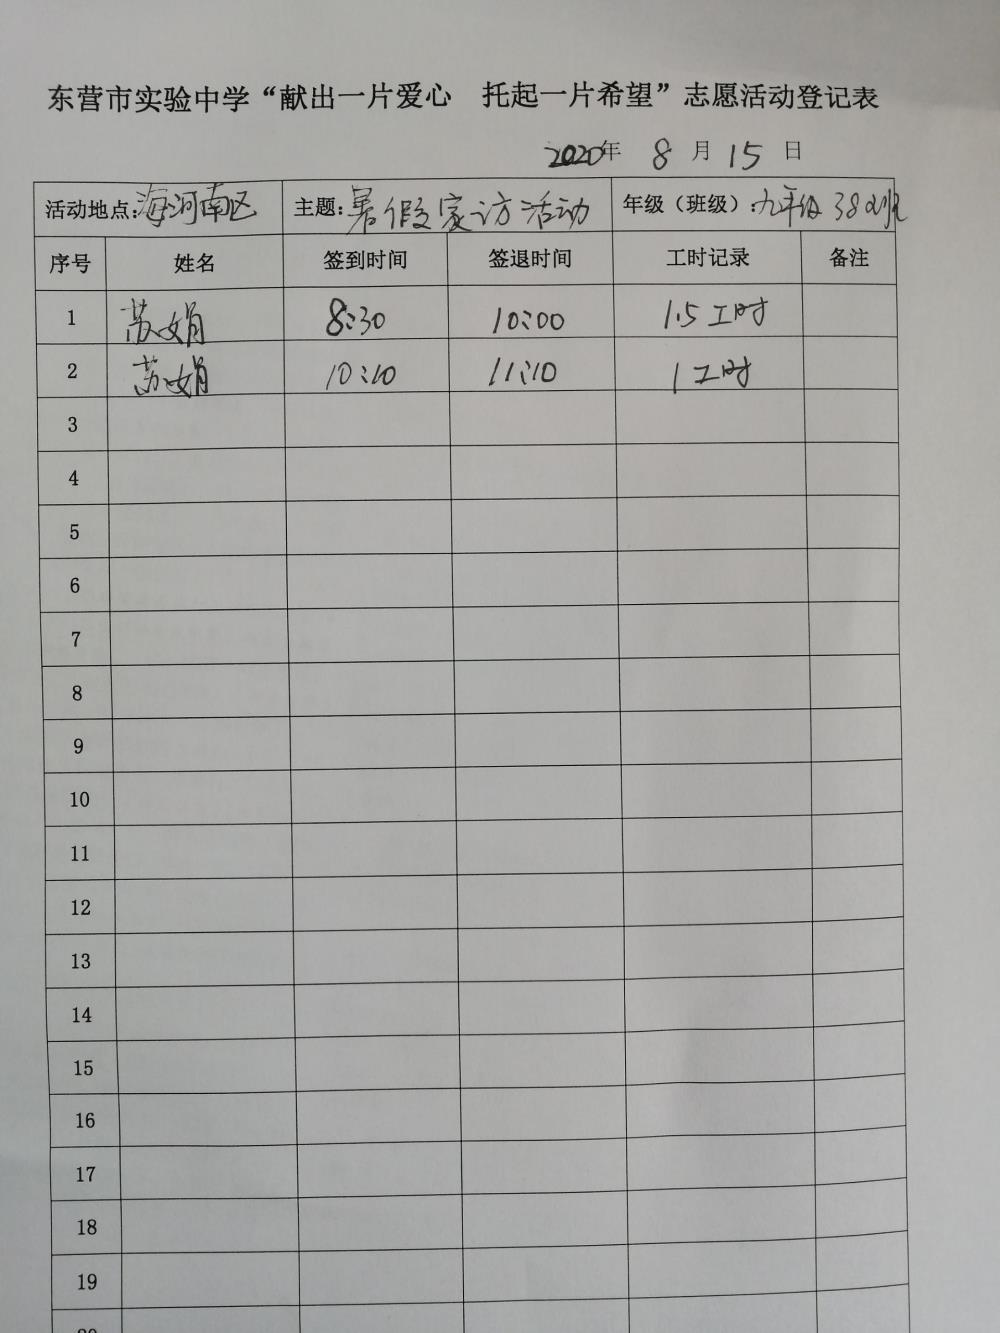 东营市实验中学“献出一片爱心 托起一片希望”志愿活动登记表
2020年 8 月 15 日
活动地点:海河南区 主题:暑假家访活动 年级（班级）:九年级38班
序号 姓名 签到时间 签退时间 工时记录 备注
1 苏娟 8:30 10:00 1.5工时
2 苏娟 10:10 11:10 1工时
3
4
5
6
7
8
9
10
11
12
13
14
15
16
17
18
19